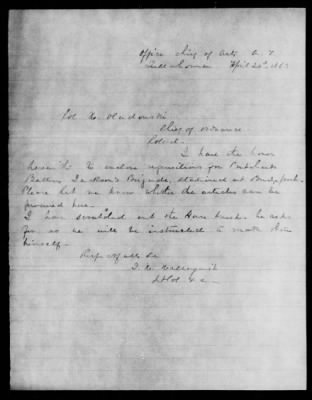 Office Chief of Arty. A. T.
Tullahoma April 20th 1863
Col. H. Oladowski
Chief of Ordnance
Colonel.
I have the honor
herewith to enclose requisitions for
Battery Jackson's Brigade, stationed at Bridgeport.
Please let me know whether the articles can be
procured here.
I have scratched out the Horse brushes he asks
for as he will be instructed to make them
himself.
Respectfully &c
J. H. Hallonquist
Lt Col &c